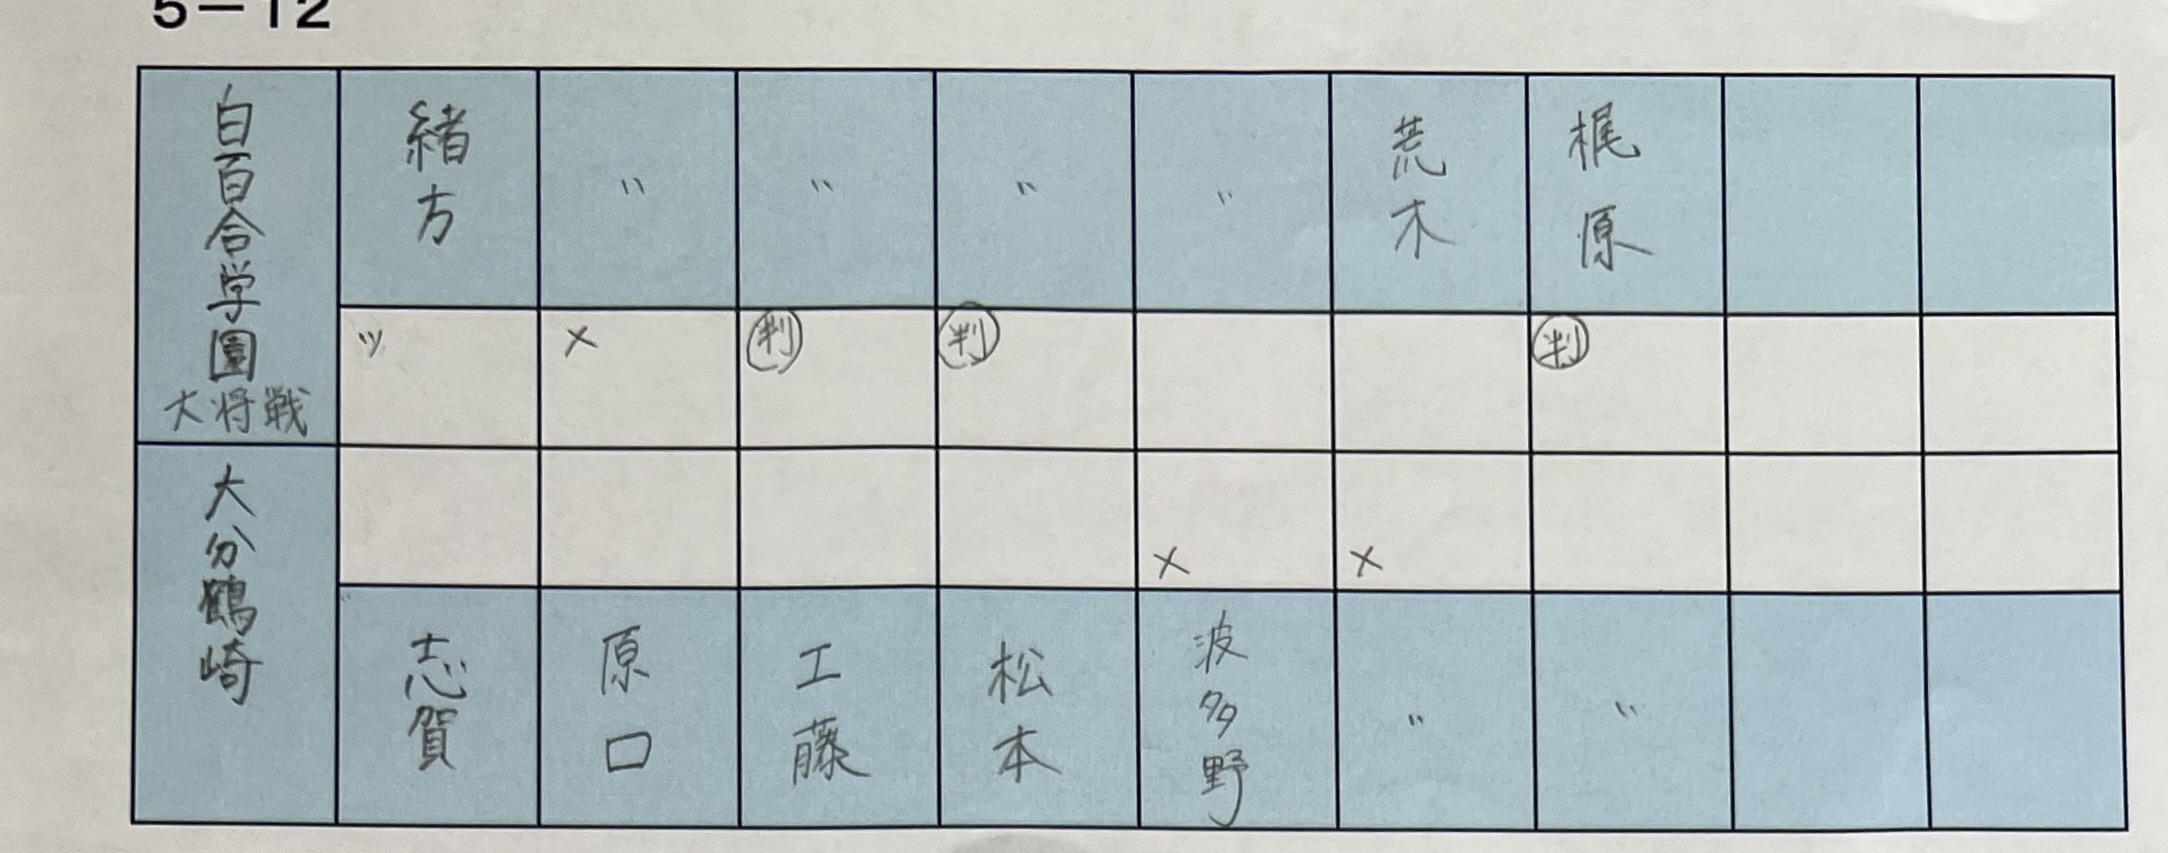 5－12
白百合学園 緒方 〃 〃 〃 〃 荒木 梶原
大将戦 ツ × 判 判 判
× ×
大分鶴崎 志賀 原口 工藤 松本 波多野 〃 〃